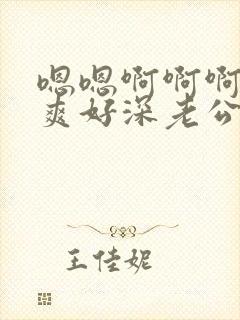 嗯嗯啊啊啊
爽好深老公
王佳妮